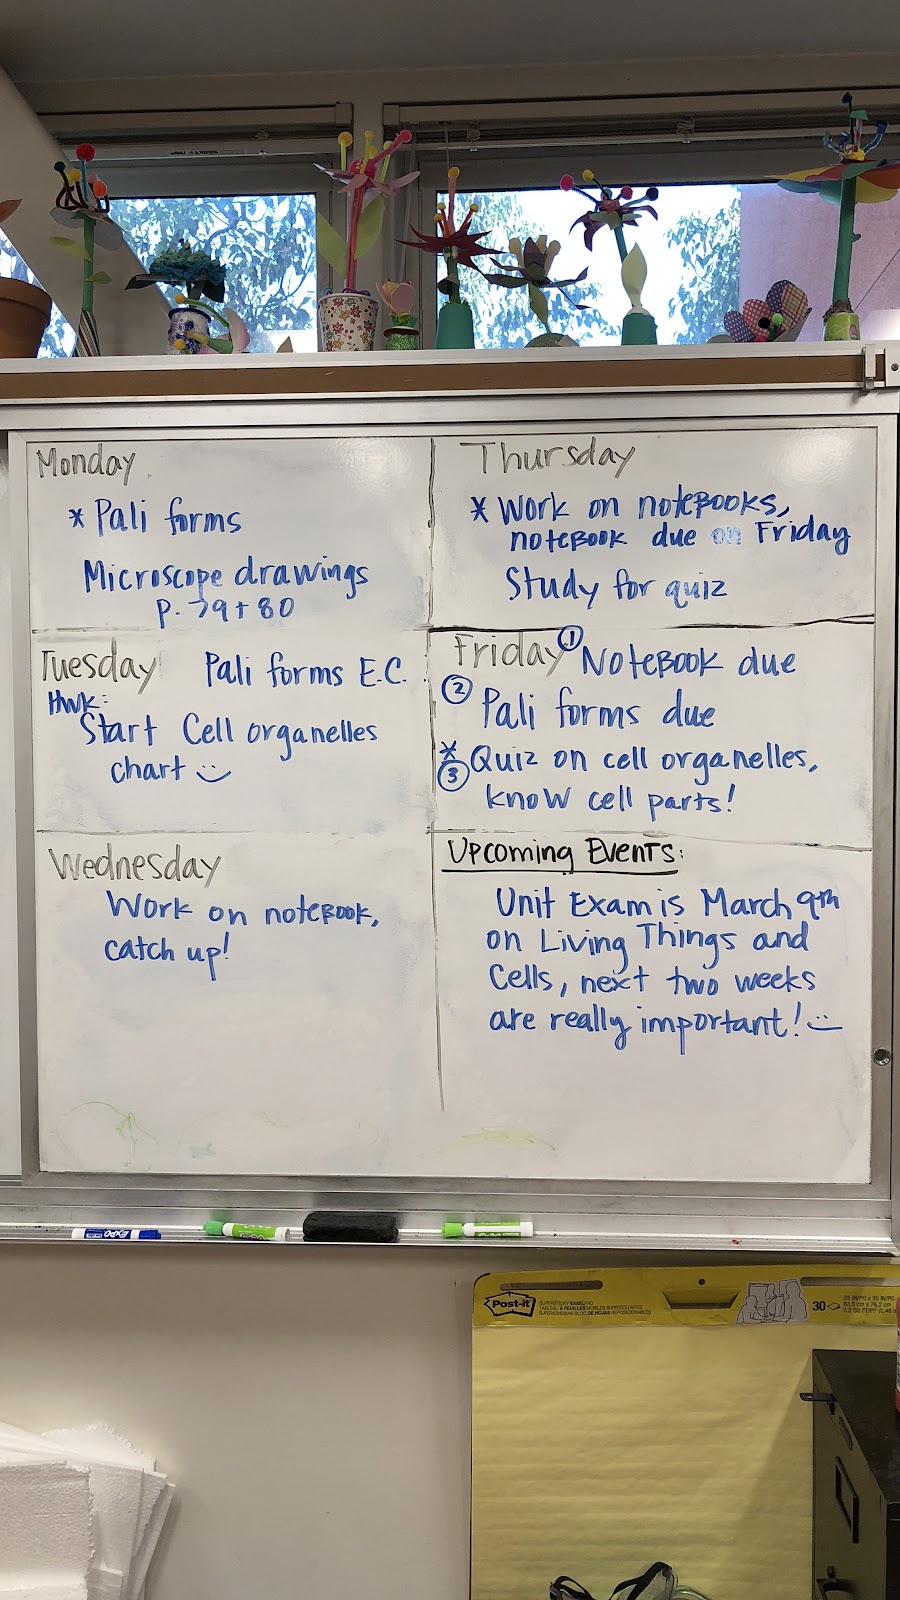 Monday
* Pali forms
Microscope drawings
p. 79 + 80
Tuesday Pali forms E.C.
HWK:
Start Cell organelles
chart
Wednesday
Work on notebook,
catch up!
Thursday
* Work on notebooks,
notebook due on Friday
Study for quiz
Friday ① Notebook due
② Pali forms due
* ③ Quiz on cell organelles,
know cell parts!
Upcoming Events:
Unit Exam is March 9th
on Living Things and
Cells, next two weeks
are really important!
EXPO
Post-it
SUPERSTICKY EASEL PAD
30
25 IN/PO x 30 IN/PO
63,5 cm x 76,2 cm